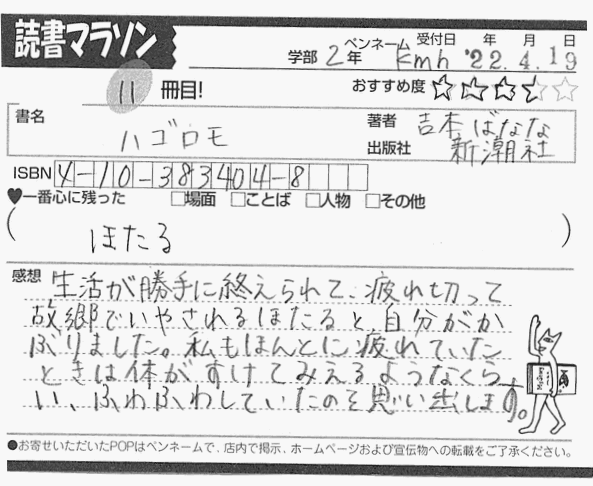 読書マラソン
学部 2年 ペンネーム kmh 受付日 '22年 4月 19日
11 冊目!
おすすめ度
書名 ハゴロモ
著者 吉本ばなな
出版社 新潮社
ISBN 4-10-383404-8
♥一番心に残った □場面 □ことば □人物 □その他
(ほたる)
感想 生活が勝手に終えられて、疲れ切って
故郷でいやされるほたると、自分がか
ぶりました。私もほんとに疲れていた
ときは体がすけてみえるようなくら
い、ふわふわしていたのを思い出します。
●お寄せいただいたPOPはペンネームで、店内で掲示、ホームページおよび宣伝物への転載をご了承ください。